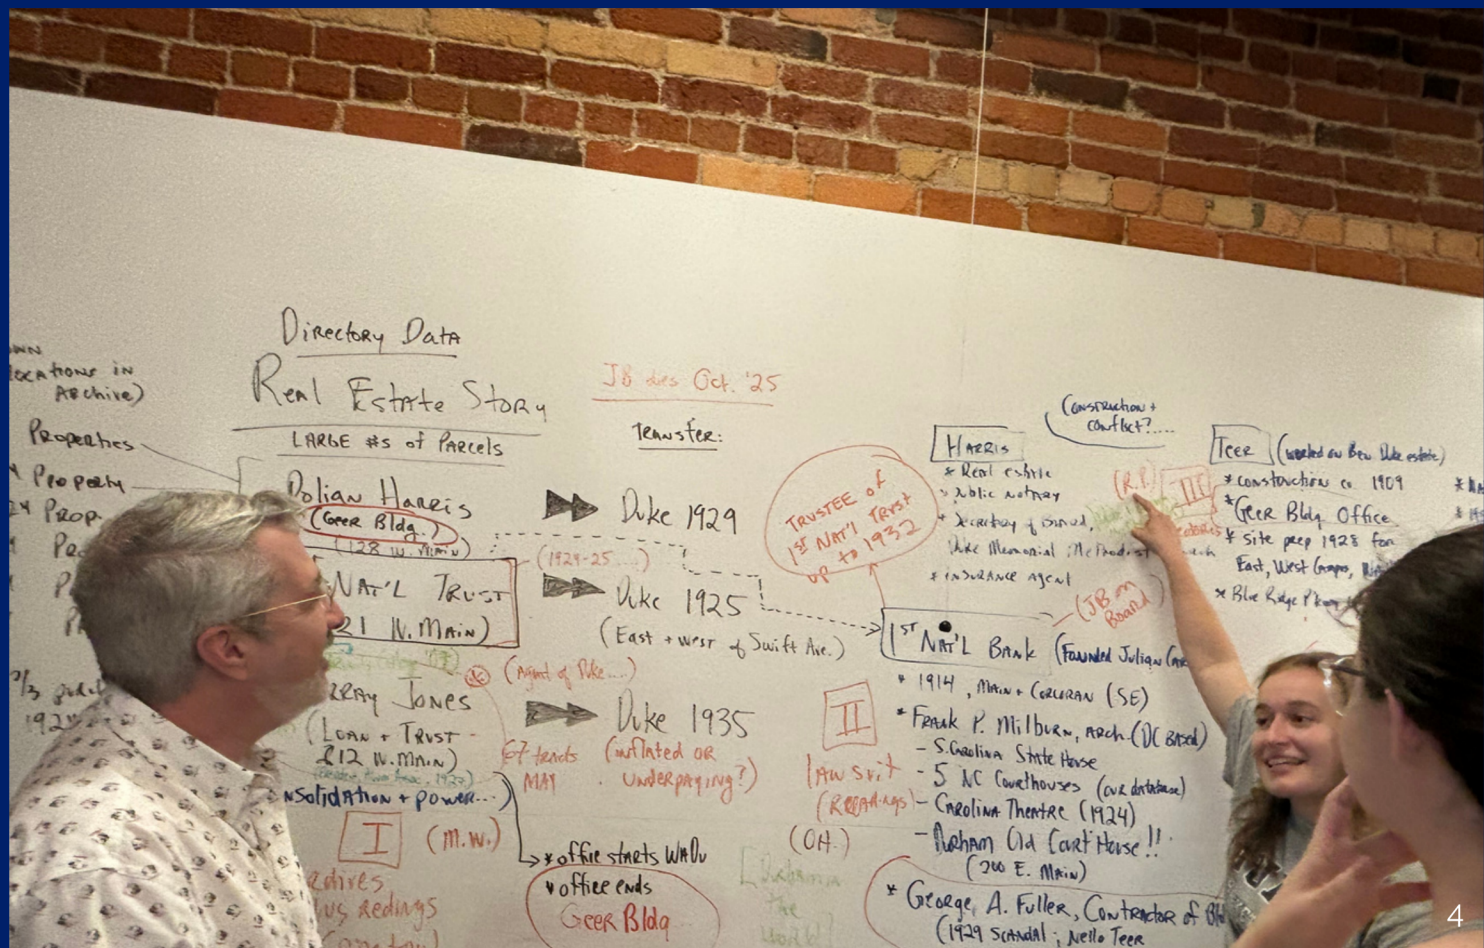 OWN
LOCATIONS IN
ARCHIVE)
Properties
Property
24 Prop.
1924
Directory Data
Real Estate Story
LARGE #s of Parcels
Dolian Harris
(Geer Bldg.)
(128 W. Main)
NAT'L TRUST
21 W. MAIN)
RAY JONES
(LOAN + TRUST -
212 W. MAIN)
NSOLIDATION + POWER...)
I (M.W.)
JB dies Oct. '25
TRANSFER:
Duke 1929
(1924-25....)
Duke 1925
(East + West of Swift Ave.)
(Agent of Duke....)
Duke 1935
67 tracts
MAY
(inflated OR
underpaying?)
* office starts WADU
* office ends
Geer Bldg
TRUSTEE of
1ST NAT'L TRUST
up to 1932
II
lawsuit
(Readings)
(OH.)
Durham
the
World
HARRIS
* Real estate
* Public notary
* Secretary of Board,
Duke Memorial Methodist
* insurance agent
(JB on
Board)
1ST NAT'L BANK (Founded Julian Car
* 1914, MAIN + CORCORAN (SE)
* FRANK P. Milburn, ARCH. (DC BASED)
- S. Carolina State House
- 5 NC Courthouses (our database)
- Carolina Theatre (1924)
- Durham Old Court House!!
(200 E. Main)
* George A. Fuller, Contractor of Bl
(1929 SCANDAL; Nello Teer
(Construction +
conflict?....
(R.P.)
III
TEER (worked on Ben Duke estate)
* construction co. 1909
* Geer Bldg Office
* site prep 1928 for
East, West Campus,
* Blue Ridge Pkway
4